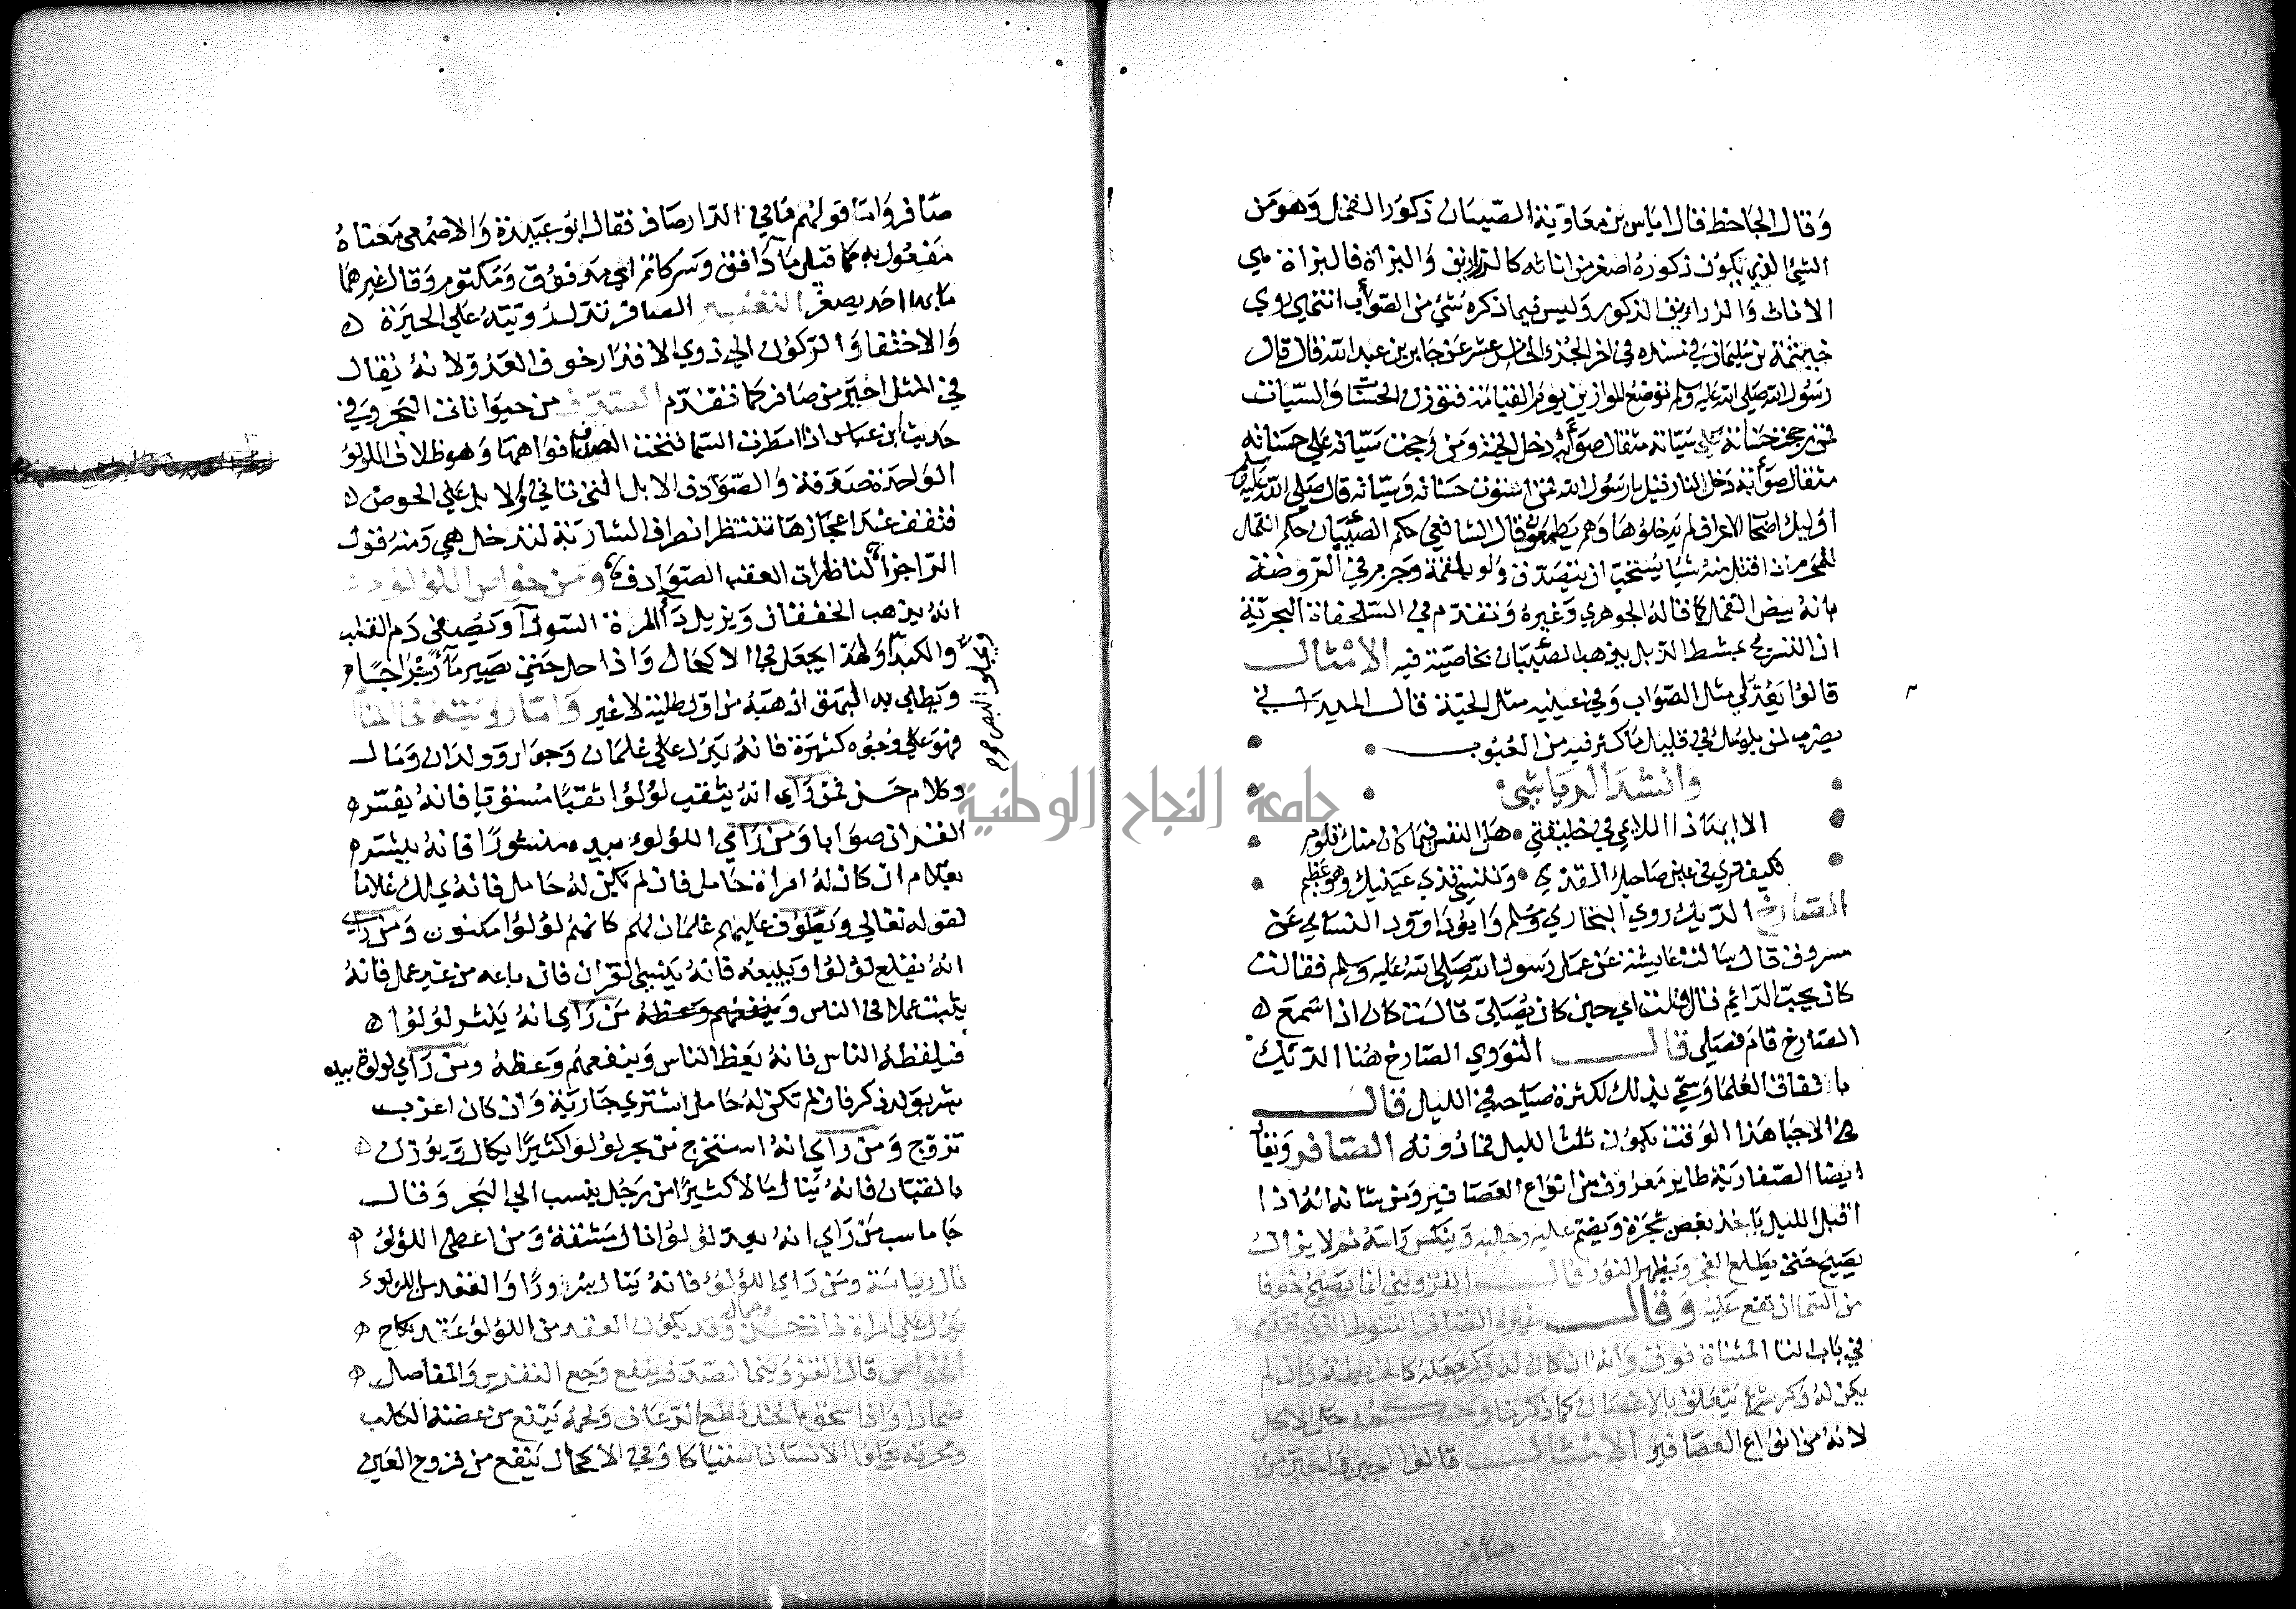 وقال الجاحظ قال اياس بن معاوية الصيبان ذكور القمل وهو من
الشئ الذي يكون ذكوره اصغر من اناثه كالزراريق والبزاة فالبزاة هي
الاناث والزراريق الذكور وليس فيما ذكره شئ من الصواب انتهى روى
خيثمة بن سليمان في مسنده في اخر الجزء الخامس عشر عن جابر بن عبد الله قال قال
رسول الله صلى الله عليه وسلم توضع الموازين يوم القيامة فتوزن الحسنات والسيات
فمن رجحت حسناته على سياته مثقال صوأبة دخل الجنة ومن رجحت سياته على حسناته
مثقال صوأبة دخل النار قيل يا رسول الله فمن استوت حسناته وسياته قال صلى الله عليه وسلم
اوليك اصحاب الاعراف لم يدخلوها وهم يطمعون قال الشافعي حكم الصيبان حكم القمل
للمحرم اذا قتل منه شيا يستحب ان يتصدق ولو بلقمة وجزم في الروضة
بانه بيض القمل كما قاله الجوهري وغيره وتقدم في السلحفاة البحرية
ان التسريح بمشط الذبل يذهب الصيبان بخاصية فيه الامثال
قالوا يعد في مثل الصواب وفي عينيه مثل الجرة قال الميداني
يضرب لمن يلومك في قليل ما كثر فيه من العيوب
وانشد الرياشي
الا ايهاذا اللايمي في خليقتي هل النفس فيما كان منك تلوم
فكيف ترى في عين صاحبك القذى وتنسى قذى عينيك وهو عظيم
الصارخ الديك روى البخاري ومسلم وابو داوود النسائي عن
مسروق قال سالت عايشة عن عمل رسول الله صلى الله عليه وسلم فقالت
كان يحب الدائم قال قلت اي حين كان يصلي قالت كان اذا سمع
الصارخ قام فصلى قال النووي الصارخ هنا الديك
باتفاق العلما وسمي بذلك لكثرة صياحه في الليل قال
في الاحيا هذا الوقت يكون ثلث الليل فما دونه الصافر ويقال
ايضا الصفارية طاير معروف من انواع العصافير ومن شانه انه اذا
اقبل الليل ياخذ بغصن شجرة ويضم عليه رجليه وينكس راسه ثم لا يزال
يصيح حتى يطلع الفجر ويظهر النور قال القزويني انما يصيح خوفا
من السما ان تقع عليه وقال غيره الصافر التنوط الذي تقدم
في باب التا المثناة فوق وانه ان كان له وكر جعله كالخريطة وان لم
يكن له وكر شرع يتعلق بالاغصان كما ذكرنا وحكمه حل الاكل
لانه من انواع العصافير الامثال قالوا اجبن واحير من
صافر
صافر واما قولهم ما في الدار صافر فقال ابو عبيدة والاصمعي معناه
مفعول به كما قيل ماء دافق وسر كاتم اي مدفوق ومكتوم وقال غيرهما
ما بها احد يصفر التعبير الصافر تدل رؤيته على الحيرة
والاختفا والركون الى ذوي الاقدار خوف العدو لانه يقال
في المثل احير من صافر كما تقدم الصدف من حيوانات البحر وفي
حديث ابن عباس اذا مطرت السما فتحت الصدف افواهها وهو غلاف اللؤلؤ
الواحدة صدفة والصوادف الابل التي تاتي والابل على الحوض
فتقف عند اعجازها تنتظر انصراف الشاربة لتدخل هي ومنه قول
الراجز لناظرات العقب الصوادف ومن خواص اللؤلؤ
انه يذهب الخفقان ويزيل داء المرة السودا ويصفي دم القلب
والكبد ولهذا يجعل في الاكحال واذا حل حتى يصير ماء رجراجا
ويجلو البصر
وطلي به البهق اذهبه من اول طلية لا غير واما رؤيته في المنام
فهو على وجوه كثيرة فانه يدل على غلمان وجوار وولدان ومال
وكلام حسن فمن راى انه يثقب لؤلؤا ثقبا مستويا فانه يفسر
القران صوابا ومن راى اللؤلؤ بيده منثورا فانه يبشر
بغلام ان كان له امراة حامل فان لم يكن له حامل فانه يملك غلاما
لقوله تعالى ويطوف عليهم غلمان لهم كانهم لؤلؤا مكنون ومن راى
انه يقلع لؤلؤا ويبيعه فانه ينسى القران فان باعه من غير عمل فانه
يثبت عملا في الناس من راى انه ينثر لؤلؤا
فيلقطه الناس فانه يعظ الناس وينفعهم وعظه ومن راى لولوة بيده
بشر بولد ذكر فان لم تكن له حامل اشترى جارية وان كان اعزب
تزوج ومن راى انه استخرج من بحر لؤلؤا كثيرا يكال ويوزن
بالقبان فانه ينال مالا كثيرا من رجل ينسب الى البحر وقال
جاماسب من راى انه يعد لؤلؤا نال مشقة ومن اعطي اللؤلؤ
نال رياسة ومن راى اللؤلؤ فانه ينال سرورا والعقد من اللولوء
يدل على امراة ذات حسن وجمال وقد يكون العقد من اللؤلؤ عقد نكاح
الخواص قال القزويني الصدف ينفع وجع النقرس والمفاصل
ضمادا واذا سحق بالخل قطع الرعاف ولحمه ينفع من عضة الكلب
ومحرقه يجلو الاسنان استياكا وفي الاكحال ينفع من قروح العين
جامعة النجاح الوطنية